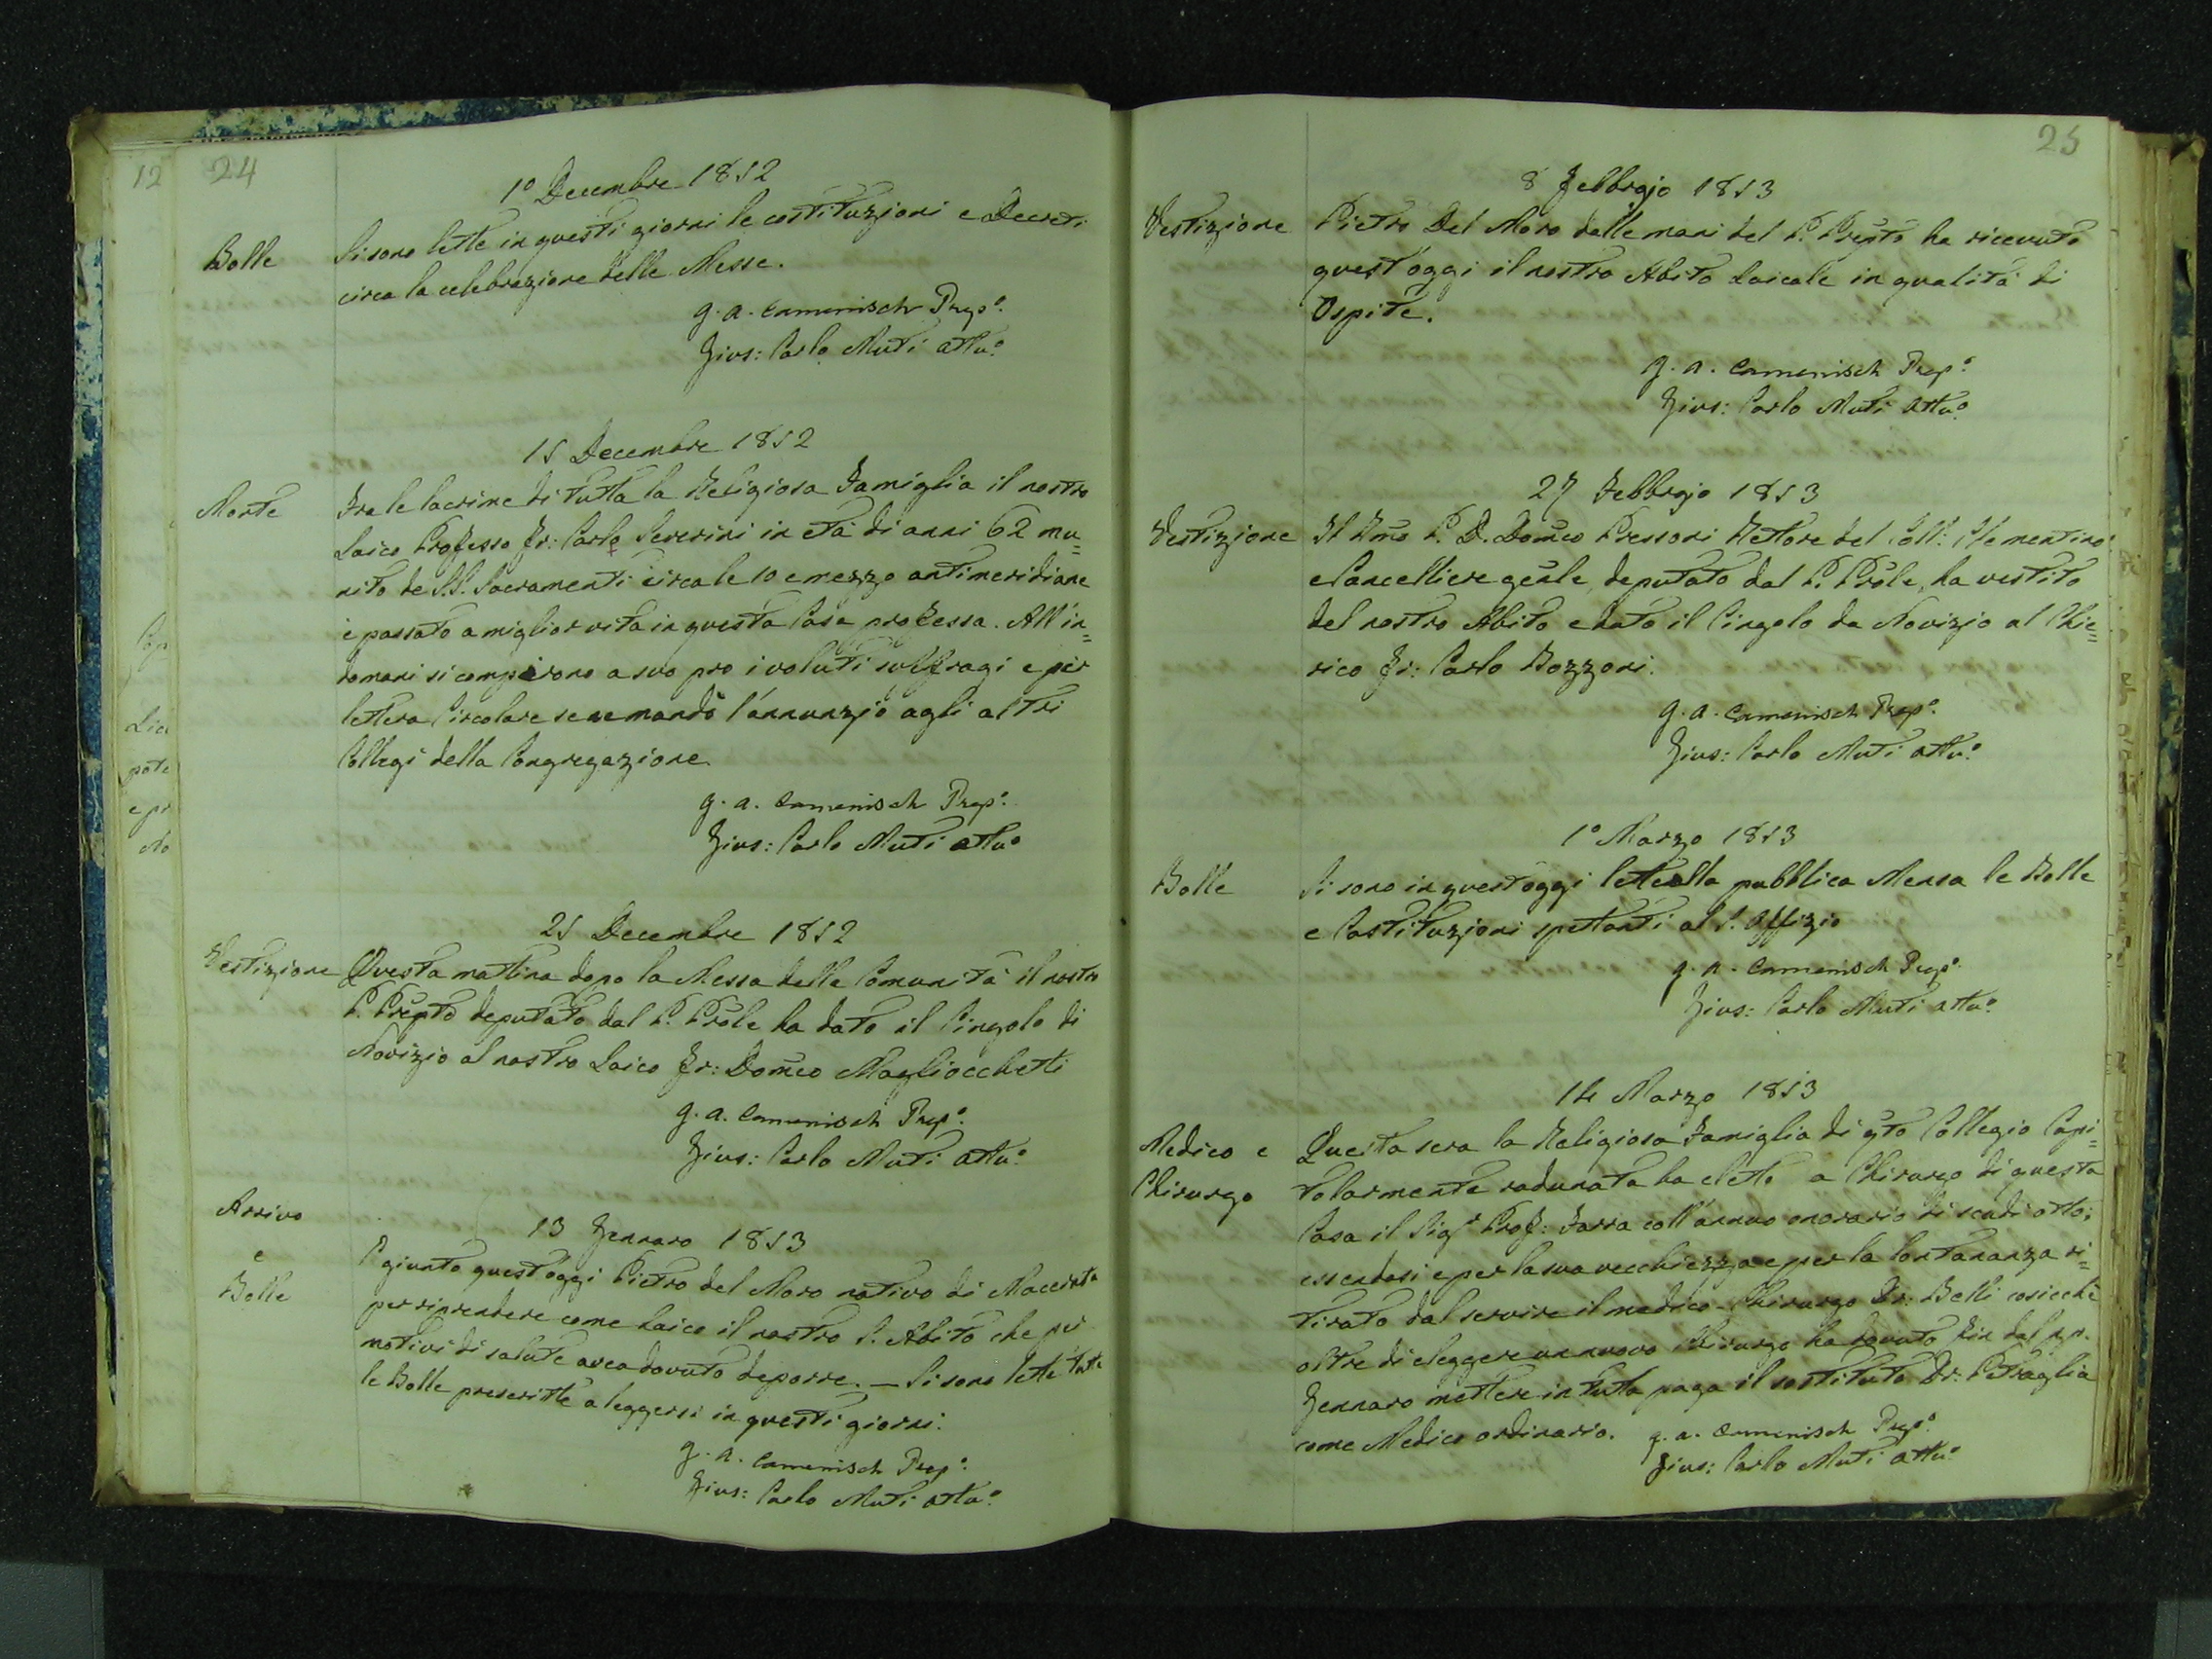 12
24
1º Decembre 1852
Bolle
Si sono lette in questi giorni le costituzioni e Decreti
circa la celebrazione delle Messe.
G. A. Camenisch Prep.º
Gius: Carlo Muti Attu.º
15 Decembre 1852
Morte
Fra le lacrime di tutta la Religiosa Famiglia il nostro
Laico Professo Fr: Carlo Severini in età di anni 62 mu=
nito de' S.S. Sacramenti circa le 10 e mezzo antimeridiane
è passato a miglior vita in questa Casa professa. All'in=
domani si compirono a suo pro i voluti suffragi e per
lettera Circolare se ne mandò l'annunzio agli altri
Collegi della Congregazione.
G. A. Camenisch Prep.º
Gius: Carlo Muti Attu.º
25 Decembre 1852
Vestizione
Questa mattina dopo la Messa della Comunità il nostro
P. Prepto deputato dal P. Prole ha dato il Cingolo di
Novizio al nostro Laico Fr: Domco Magliocchetti
G. A. Camenisch Prep.º
Gius: Carlo Muti Attu.º
Arrivo
e
Bolle
13 Gennaro 1853
È giunto quest'oggi Pietro del Moro nativo di Macerata
per riprendere come Laico il nostro S. Abito che per
motivi di salute avea dovuto deporre. — Si sono lette tutte
le Bolle prescritte a leggersi in questi giorni.
G. A. Camenisch Prep.º
Gius: Carlo Muti Attu.º
25
8 Febbrajo 1853
Vestizione
Pietro Del Moro dalle mani del P. Prepto ha ricevuto
quest'oggi il nostro Abito Laicale in qualità di
Ospite.
G. A. Camenisch Prep.º
Gius: Carlo Muti Attu.º
27 Febbrajo 1853
Vestizione
Il Rmo P. D. Domco Pressoni Rettore del Coll: Clementino
e Cancelliere genle, deputato dal P. Prole, ha vestito
del nostro Abito e dato il Cingolo da Novizio al Chie=
rico Fr: Carlo Bozzoni.
G. A. Camenisch Prep.º
Gius: Carlo Muti Attu.º
1º Marzo 1853
Bolle
Si sono in quest'oggi lette alla pubblica Mensa le Bolle
e Costituzioni spettanti al S. Offizio
G. A. Camenisch Prep.º
Gius: Carlo Muti Attu.º
14 Marzo 1853
Medico e
Chirurgo
Questa sera la Religiosa Famiglia di qto Collegio Capi=
tolarmente radunata ha eletto a Chirurgo di questa
Casa il Sigr Prof: coll'annuo onorario di scudi otto;
essendosi e per la sua vecchiezza e per la lontananza ri=
tirato dal servire il medico-Chirurgo Dr: Belli cosicchè
oltre di eleggere un nuovo Chirurgo ha dovuto fin dal p.p.
Gennaro mettere in tutta paga il sostituto Dr: Petraglia
come Medico ordinario.
G. A. Camenisch Prep.º
Gius: Carlo Muti Attu.º